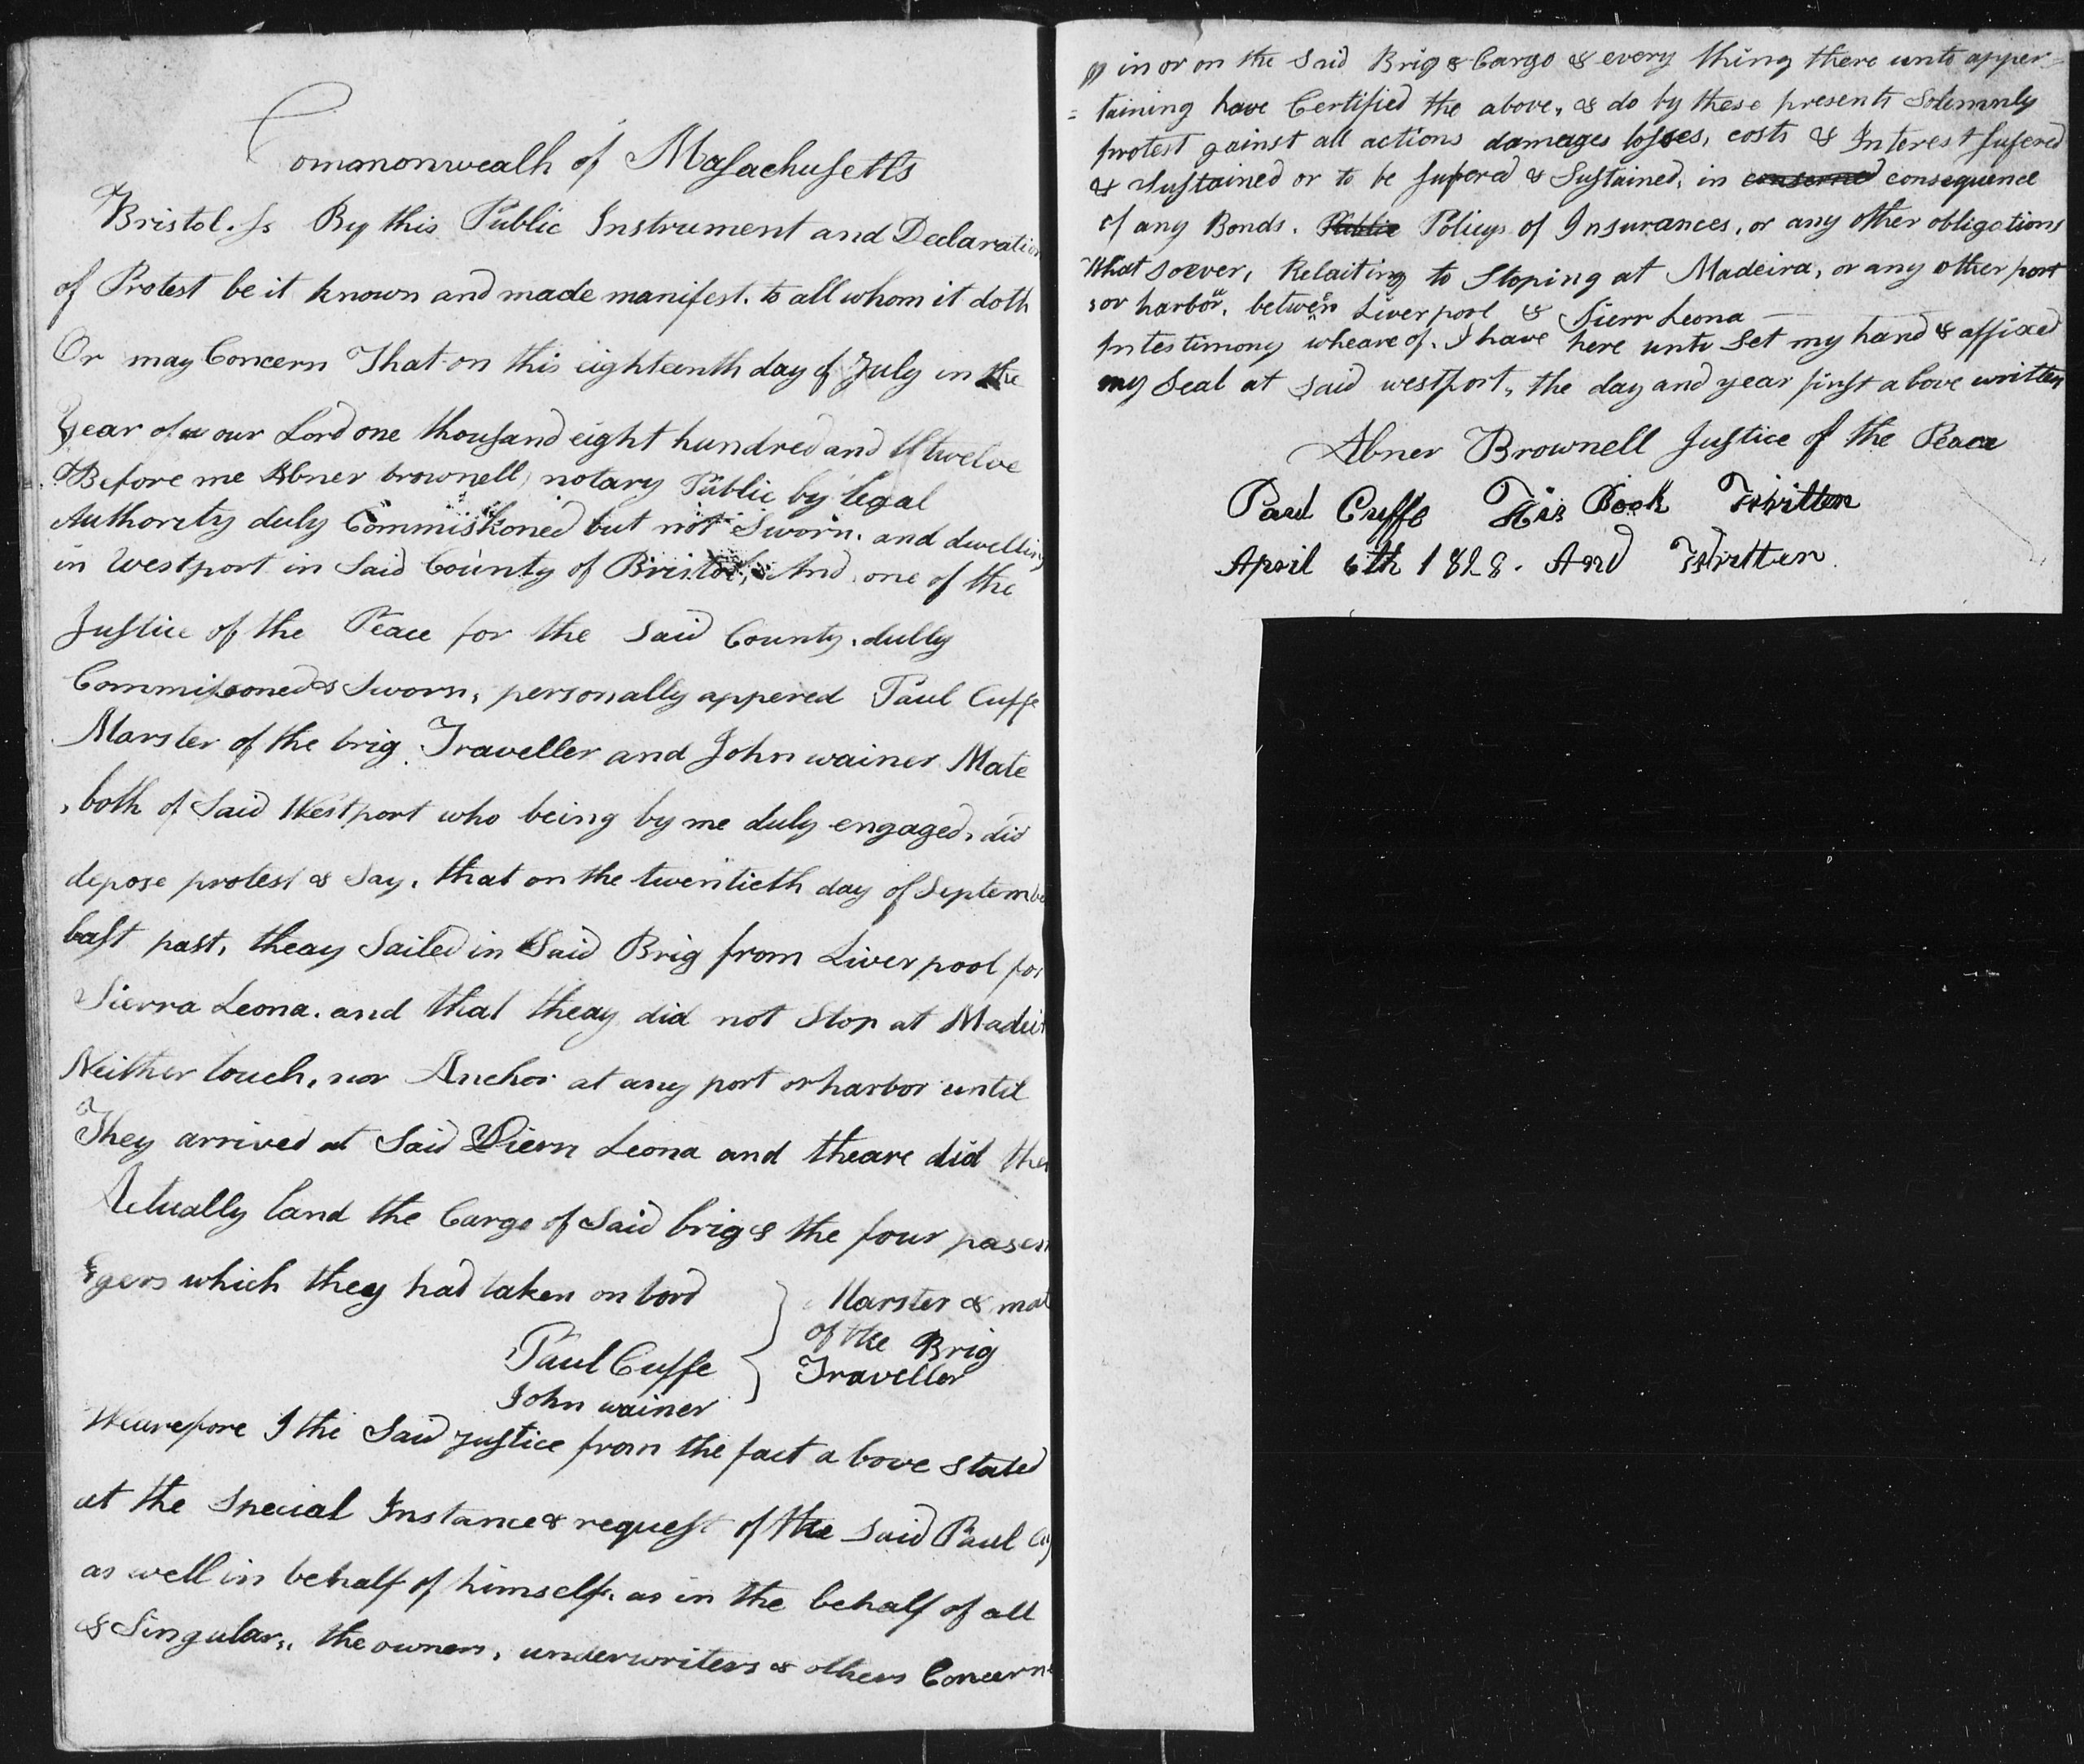 Commonwealh of Masachusetts
Bristol. Ss By this Public Instrument and Declaration
of Protest be it known and made manifest. to all whom it doth
Or may Concern That on this eighteenth day of July in the
Year of our Lord one thousand eight hundred and twelve
Before me Abner brownell, notary Public by legal
Authority duly Commishoned but not Sworn. and dwelling
in Westport in Said County of Bristol, And one of the
Justice of the Peace for the Said County. dully
Commissoned & Sworn, personally appered Paul Cuffe
Marster of the brig Traveller and John wainer Mate
, both of Said Westport who being by me duly engaged, did
depose protest & Say, that on the twentieth day of Septembe
last past, theay Sailed in Said Brig from Liverpool for
Sierra Leona. and that theay did not Stop at Madei
Neither touch, nor Anchor at any port or harbor until
They arrived at Said Sierr Leona and theare did the
Actually land the Cargo of Said brig & the four pasen
gers which they had taken on bord
Paul Cuffe
John wainer
} Marster & mat
of the Brig
Traveller
Wheurefore I the Said Justice from the fact a bove Stated
at the Special Instance & request of the Said Paul Cu
as well in behalf of himself. as in the behalf of all
& Singular,, the owners, underwriters & others Concerne
in or on the Said Brig & Cargo & every thing there unto apper=
= taining have Certified the above, & do by these presents Solemnly
protest gainst all actions damages losses, costs & Interest sufered
& Sustained or to be sufered & Sustained, in conserned consequence
of any Bonds. Public Policys of Insurances, or any other obligations
What soever, Relaiting to Stoping at Madeira, or any other port
or harbour, between Liverpool & Sierr Leona
In testimony wheare of. I have here unto Set my hand & affixed
my Seal at said westport, the day and year first a bove written
Abner Brownell Justice of the Peace
Paul Cuffe His Book Written
April 6th 1828. And Written.